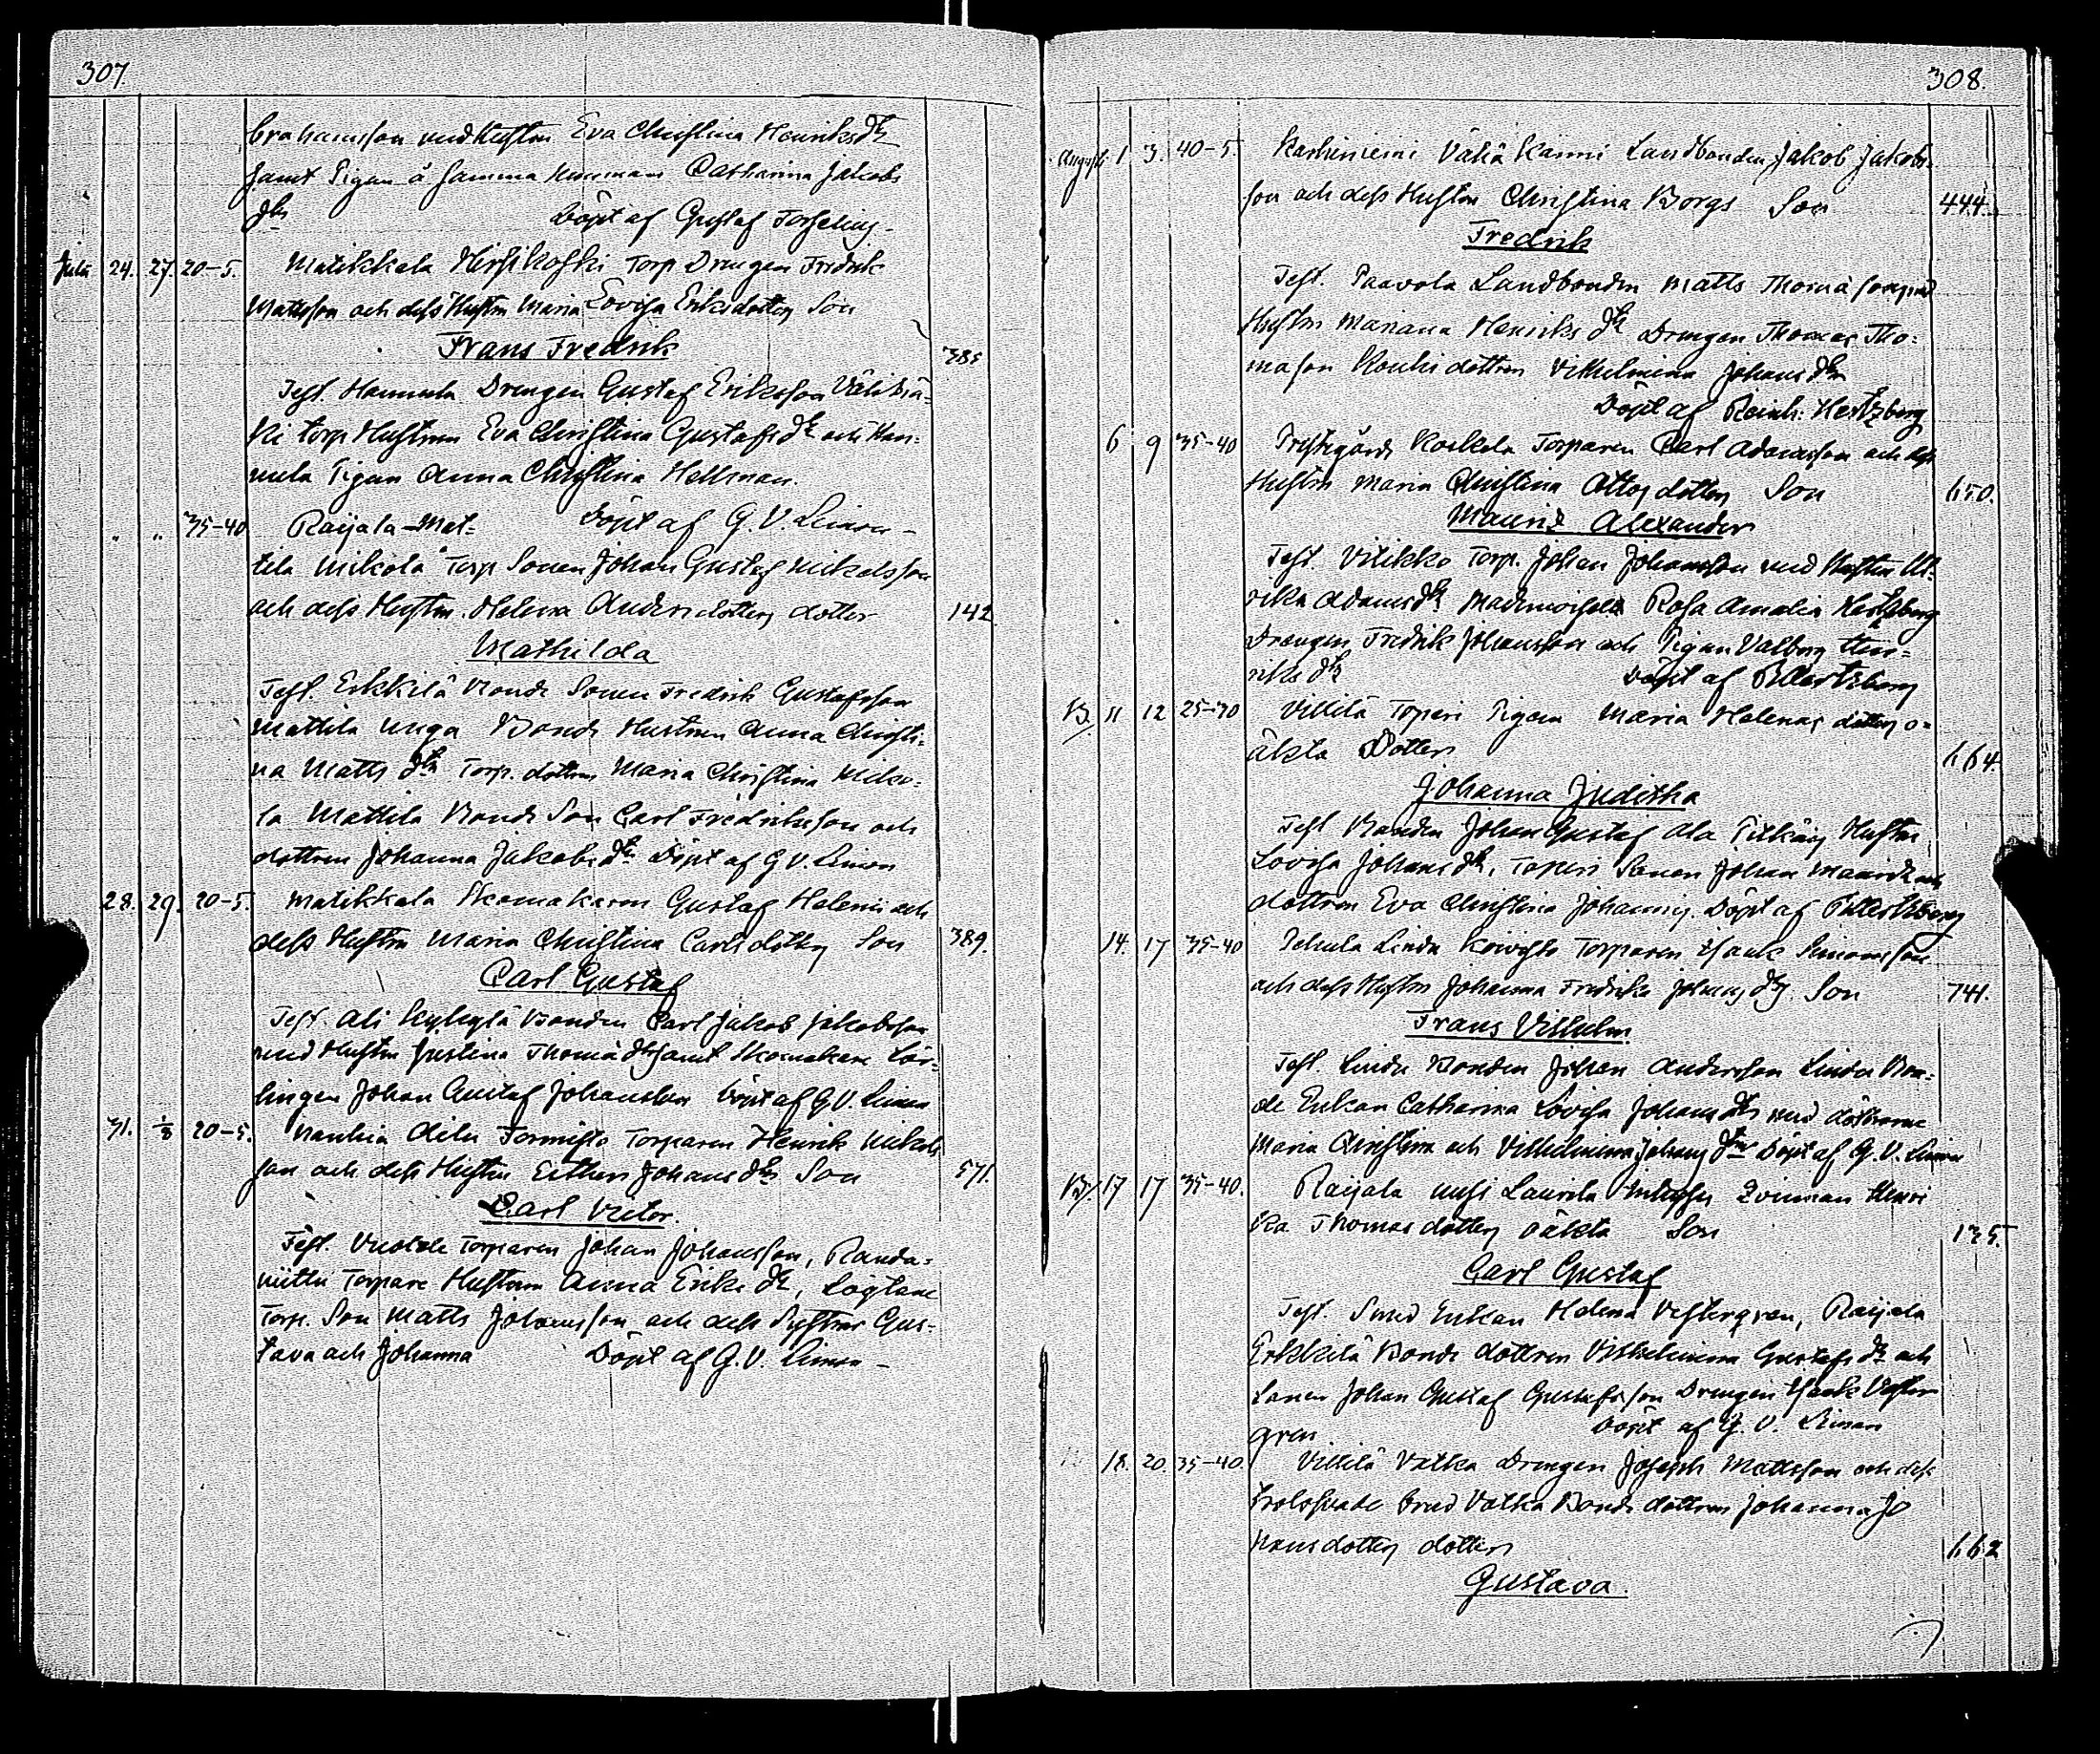 307.
brahamsson med Hustrun Eva Christina Henriksdr
samt Pigan å samma hemman Catharina Jakobs
dr Döpt af Gustaf Forselius
Julii 24. 27. 20-5. Matikkala Hirsikoski Torp Drengen Fredrik
Mattsson och dess Hustru Maria Lovisa Eriksdotters Son
Frans Fredrik 385
Test. Hannula Drengen Gustaf Eriksson Välikos-
ki torp Hustrun Eva Christina Gustafsdr och Han-
nula Pigan Anna Christina Hellman.
" " 35-40 Raijala-Mat- Döpt af G. V. Limon
tila Mikola Torp Sonen Johan Gustaf Mikelsson
och dess Hustru Helena Andersdotters dotter 142
Mathilda
Test. Erkkilä Bonde Sonen Fredrik Gustafsson
Mattila unga Bonde Hustrun Anna Christi-
na Matts dr Torp. dottren Maria Christina Miko-
la Mattila Bonde Son Carl Fredriksson och
dottren Johanna Jakobsdr Döpt af G V. Limon
28. 29. 20-5. Matikkala Skomakaren Gustaf Helenii och
dess Hustru Maria Christina Carlsdotters Son 389.
Carl Gustaf
Test. Ali Kyläylä Bonden Carl Jakob Jakobsson
med Hustru Justina Thomædr samt Skomakare Lär-
lingen Johan Gustaf Johansson Döpt af G V. Limon
31. 1/8 20-5. Mauhia Aila Formisto Torparen Henrik Mikels
son och dess Hustru Esther Johansdrs Son 571.
Carl Victor.
Test. Torparen Johan Johansson, Randa-
niittu Torpare Hustrun Anna Eriksdr,
Torp. Son Matts Johansson och dess Systrar Gus-
tava och Johanna Döpt af G. V. Limon
308.
Augusti 1 3. 40-5. Karhiniemi Vähä Kanni Landbonden Jakob Jakobs-
son och dess Hustru Christina Borgs Son 444.
Fredrik
Test. Paavola Landbonden Matts Thomasson med
Hustru Mariana Henriksdr Drengen Thomas Tho-
masson Kouhi dottren Vilhelmina Johansdr
Döpt af Reinh: Hertzberg
6 9 35-40 Prestgårds Koskela Torparen Carl Adamsson och dess
Hustru Maria Christina Ottos dotters Son 650.
Mauriz Alexander
Test. Vilikko Torp. Johan Johansson med Hustru Ul-
rika Adamsdr Mademoiselle Rosa Amalia Hertzberg
Drengen Fredrik Johansson och Pigan Valborg Hen-
riksdr Döpt af R Hertzberg
B. 11 12 25-30 Villilä Toperi Pigan Maria Helenas dotters o-
äkta Dotter 664.
Johanna Juditha
Test Bonden Johan Gustaf Ala Pitkäs Hustru
Lovisa Johansdr, Toperi Sonen Johan Mauritz och
dottren Eva Christina Johannis. Döpt af R Hertzberg
14. 17 35-40 Sehula Linda Koivisto Torparen Isaak Simonsson
och dess Hustru Johanna Fredrika Johansdrs. Son 741.
Frans Vilhelm
Test. Linda Bonden Johan Andersson Linda Bon-
de Enkan Catharina Lovisa Johansdr med döttrarne
Maria Christina och Vilhelmina Johansdr Döpt af G. V. Limon
B. 17 17 35-40. Raijala uusi Laurila Inhyses Qvinnan Henri
ka Thomas dotters oäkta Son 135.
Carl Gustaf
Test. Smed Enkan Helena Vestergren, Raijala
Erkkilä Bonde dottren Vilhelmina Gustafsdr och
sonen Johan Gustaf Gustafsson Drengen Isaak Vester
gren Döpt af G. V. Limon
18. 20. 35-40. Villilä Vatka Drengen Joseph Mattsson och dess
trolofvade brud Vatka Bonde dottren Johanna Jo
hansdotters dotter 662
Gustava.